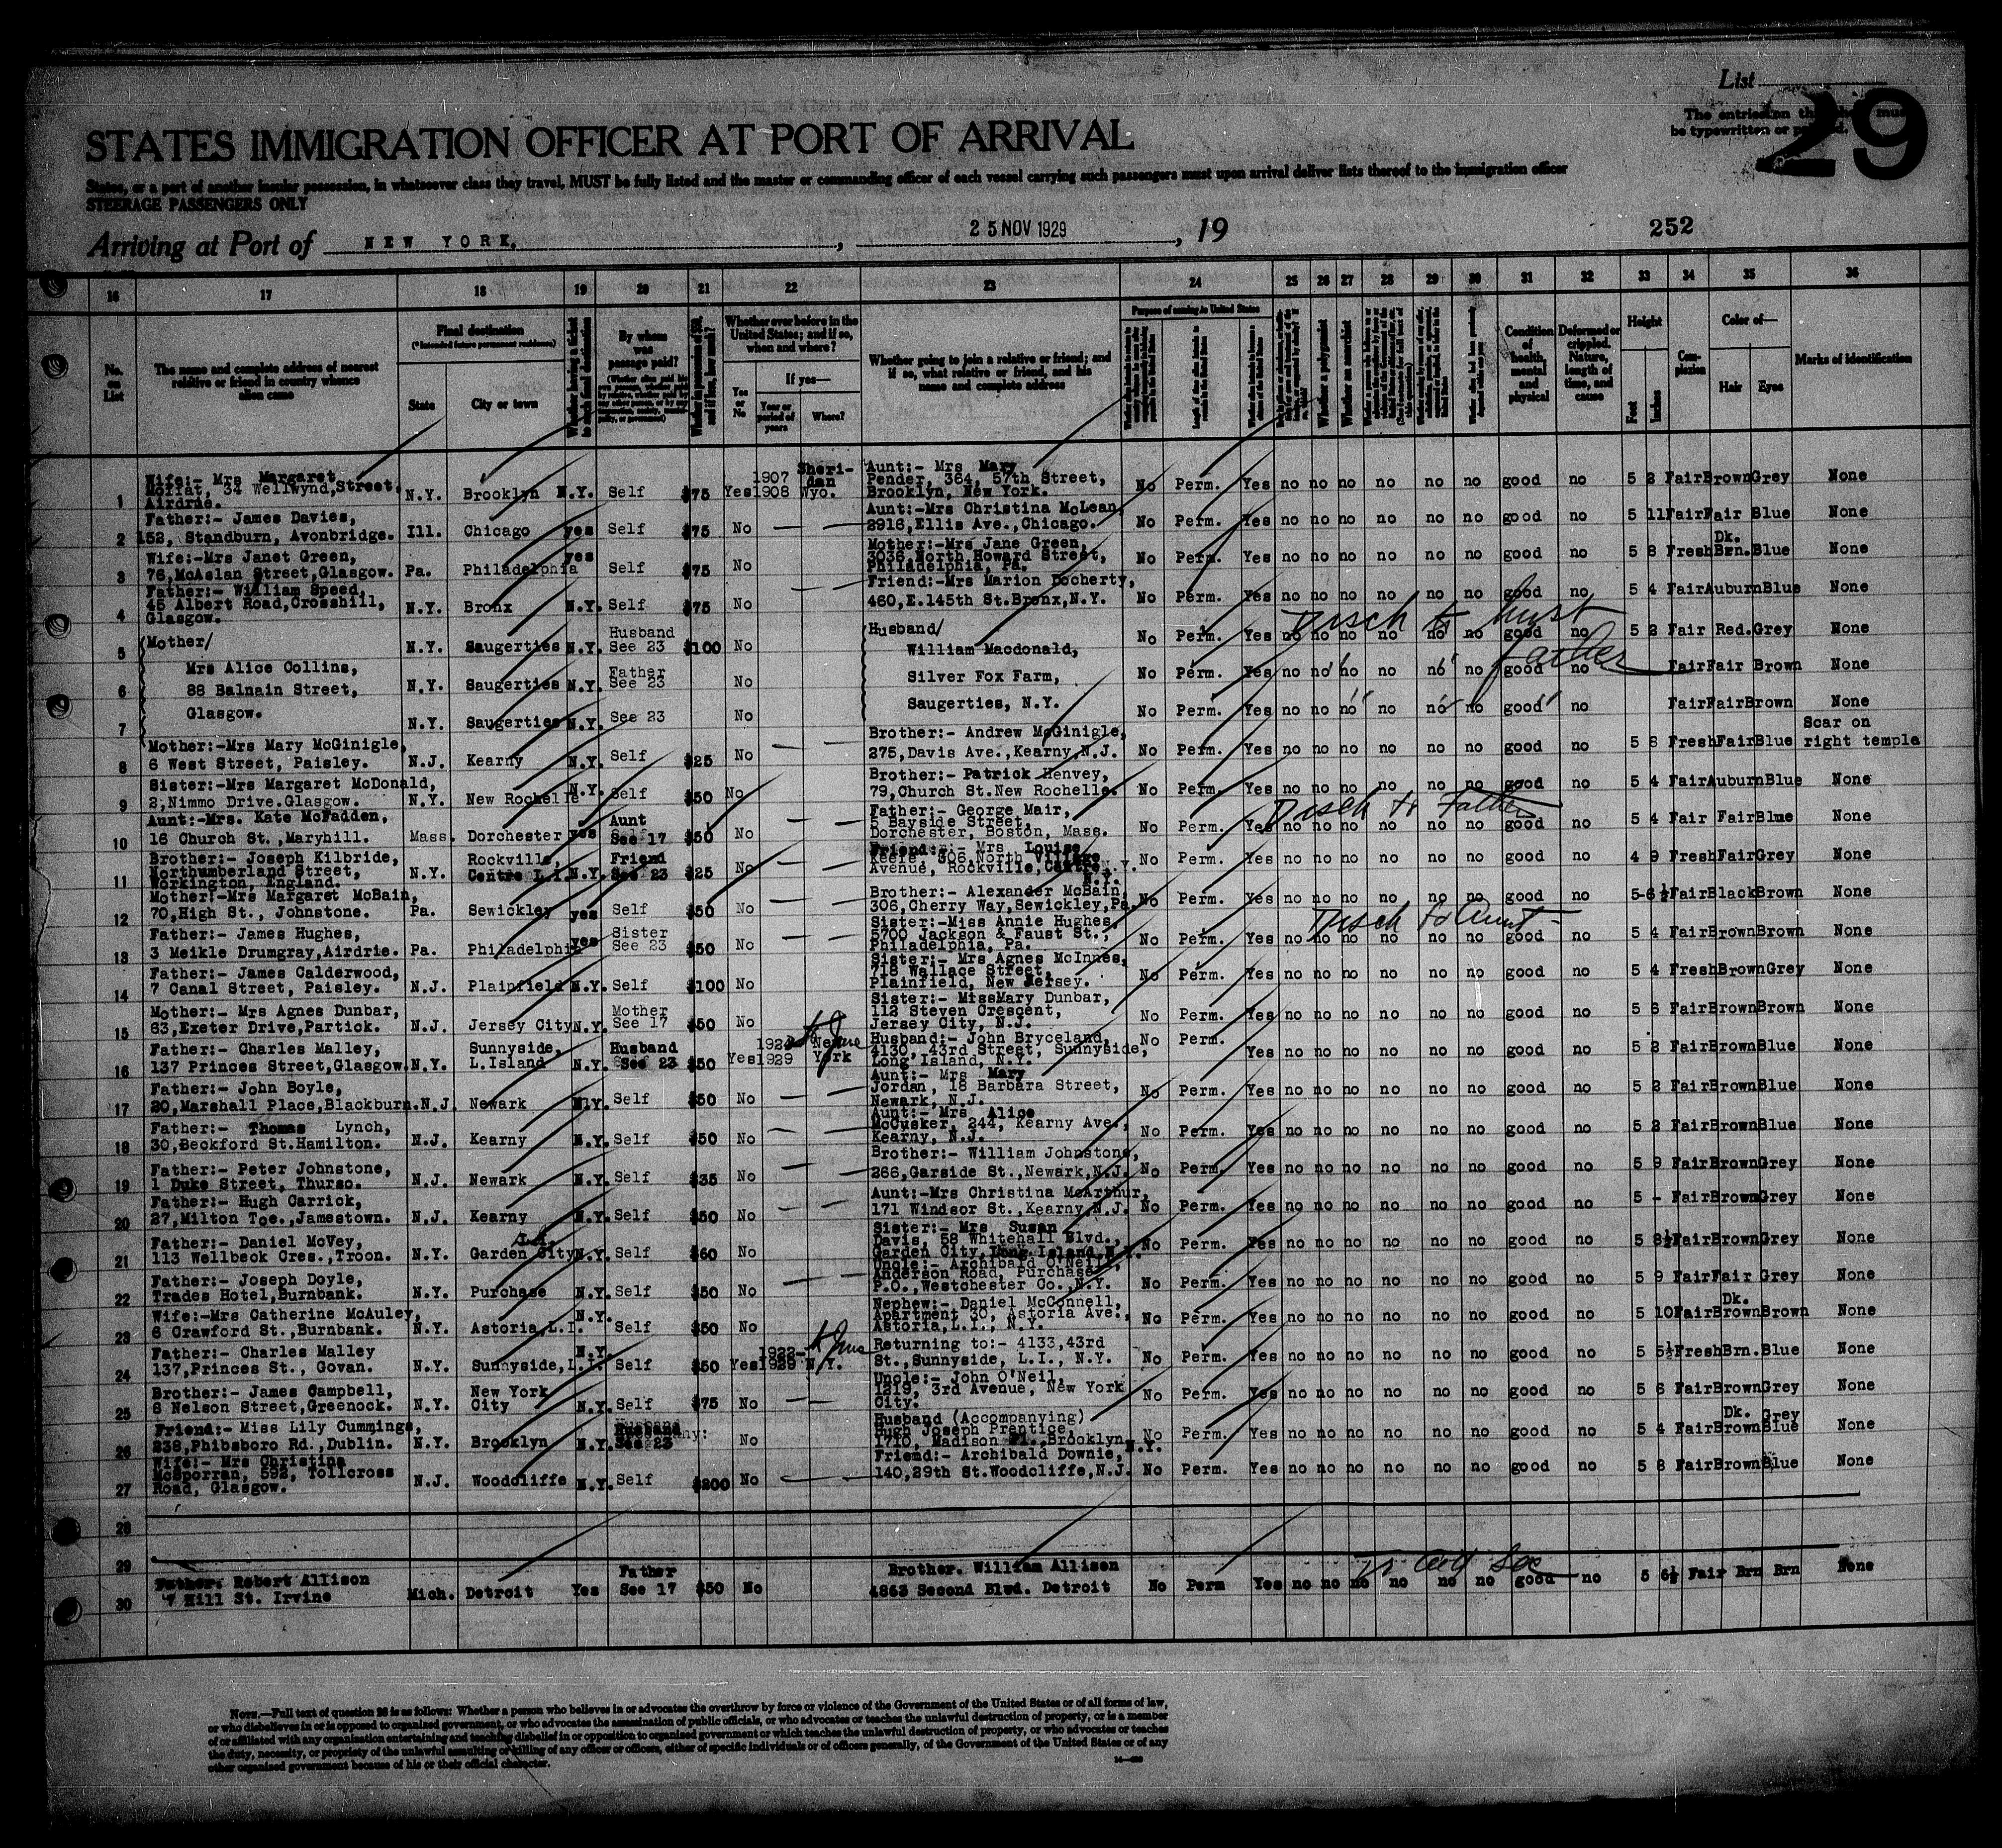 List
The entries on this
be typewritten or
29
STATES IMMIGRATION OFFICER AT PORT OF ARRIVAL
States, or a part of another insular possession, in whatsoever class they travel, MUST be fully listed and the master or commanding officer of each vessel carrying such passengers must upon arrival deliver lists thereof to the immigration officer
STEERAGE PASSENGERS ONLY
Arriving at Port of NEW YORK, , 25 NOV 1929 , 19
252
16 17 18 19 20 21 22 23 24 25 26 27 28 29 30 31 32 33 34 35 36
No. on List
The name and complete address of nearest relative or friend in country whence alien came
Final destination
(*Intended future permanent residence)
State
City or town
By whom was passage paid?
Whether ever before in the United States; and if so, when and where?
Yes or No
If yes—
Year or period of years
Where?
Whether going to join a relative or friend; and if so, what relative or friend, and his name and complete address
Purpose of coming to United States
Whether a polygamist
Whether an anarchist
Condition of health, mental and physical
Deformed or crippled. Nature, length of time, and cause
Height
Feet
Inches
Complexion
Color of—
Hair
Eyes
Marks of identification
1 Wife:- Mrs Margaret Moffat, 34 Wellwynd,Street. Airdrie. N.Y. Brooklyn N.Y. Self $75 Yes 1907 1908 Sheridan Wyo. Aunt:- Mrs Mary Pender, 364, 57th Street, Brooklyn, New York. No Perm. Yes no no no no no no good no 5 2 Fair Brown Grey None
2 Father:- James Davies, 152, Standburn, Avonbridge. Ill. Chicago yes Self $75 No — — Aunt:-Mrs Christina McLean, 2916,Ellis Ave.,Chicago. No Perm. Yes no no no no no no good no 5 11 Fair Fair Blue None
3 Wife:-Mrs Janet Green, 76,McAslan Street,Glasgow. Pa. Philadelphia yes Self $75 No Mother:-Mrs Jane Green, 3036,North Howard Street, Philadelphia, Pa. No Perm. Yes no no no no no no good no 5 8 Fresh Dk. Brn. Blue None
4 Father:- William Speed, 45 Albert Road,Crosshill, Glasgow. N.Y. Bronx N.Y. Self $75 No Friend:-Mrs Marion Docherty, 460,E.145th St.Bronx,N.Y. No Perm. Yes no no no no no no good no 5 4 Fair Auburn Blue None
Disch to husb
5 Mother/ N.Y. Saugerties N.Y. Husband See 23 $100 No Husband/ William Macdonald, No Perm. Yes no no no no no no good no 5 2 Fair Red. Grey None
father
6 Mrs Alice Collins, 88 Balnain Street, N.Y. Saugerties N.Y. Father See 23 No Silver Fox Farm, No Perm. Yes no no no no no no good no Fair Fair Brown None
7 Glasgow. N.Y. Saugerties N.Y. See 23 No Saugerties, N.Y. No Perm. Yes no no no no no no good no Fair Fair Brown None
8 Mother:-Mrs Mary McGinigle, 6 West Street, Paisley. N.J. Kearny N.Y. Self $25 No — — Brother:- Andrew McGinigle, 275,Davis Ave.,Kearny,N.J. No Perm. Yes no no no no no no good no 5 8 Fresh Fair Blue Scar on right temple
9 Sister:-Mrs Margaret McDonald, 2,Nimmo Drive.Glasgow. N.Y. New Rochelle N.Y. Self $50 No Brother:- Patrick Henvey, 79,Church St.New Rochelle. No Perm. Yes no no no no no no good no 5 4 Fair Auburn Blue None
Disch to Father
10 Aunt:-Mrs. Kate McFadden, 16 Church St.,Maryhill. Mass. Dorchester yes Aunt See 17 $50 No — — Father:- George Mair, 5 Bayside Street, Dorchester, Boston, Mass. No Perm. Yes no no no no no no good no 5 4 Fair Fair Blue None
11 Brother:- Joseph Kilbride, Northumberland Street, Workington, England. N.Y. Rockville, Centre L.I. N.Y. Friend See 23 $25 No — — Friend:- Mrs Louise Keefe, 306,North Village Avenue, Rockville,Centre, N.Y. No Perm. Yes no no no no no no good no 4 9 Fresh Fair Grey None
12 Mother:-Mrs Margaret McBain, 70,High St., Johnstone. Pa. Sewickley yes Self $50 No — — Brother:- Alexander McBain, 306,Cherry Way,Sewickley,Pa. No Perm. Yes no no no no no no good no 5-6½ Fair Black Brown None
Disch to Aunt
13 Father:- James Hughes, 3 Meikle Drumgray,Airdrie. Pa. Philadelphia yes Sister See 23 $50 No — — Sister:-Miss Annie Hughes, 5700 Jackson & Faust St., Philadelphia, Pa. No Perm. Yes no no no no no no good no 5 4 Fair Brown Brown None
14 Father:- James Calderwood, 7 Canal Street, Paisley. N.J. Plainfield N.Y. Self $100 No Sister:- Mrs Agnes McInnes, 718 Wallace Street, Plainfield, New Jersey. No Perm. Yes no no no no no no good no 5 4 Fresh Brown Grey None
15 Mother:- Mrs Agnes Dunbar, 63,Exeter Drive,Partick. N.J. Jersey City N.Y. Mother See 17 $50 No Sister:- MissMary Dunbar, 112 Steven Crescent, Jersey City, N.J. No Perm. Yes no no no no no no good no 5 6 Fair Brown Brown None
16 Father:- Charles Malley, 137 Princes Street,Glasgow. N.Y. Sunnyside, L.Island N.Y. Husband See 23 $50 Yes 1929 New York Husband:- John Bryceland, 4130, 43rd Street, Sunnyside, Long Island, N.Y. No Perm. Yes no no no no no no good no 5 2 Fair Brown Blue None
17 Father:- John Boyle, 20,Marshall Place,Blackburn. N.J. Newark N.Y. Self $50 No — — Aunt:- Mrs Mary Jordan, 18 Barbara Street, Newark, N.J. No Perm. Yes no no no no no no good no 5 2 Fair Brown Blue None
18 Father:- Thomas Lynch, 30,Beckford St.Hamilton. N.J. Kearny N.Y. Self $50 No — — Aunt:- Mrs Alice McCusker, 244, Kearny Ave., Kearny, N.J. No Perm. Yes no no no no no no good no 5 2 Fair Brown Blue None
19 Father:- Peter Johnstone, 1 Duke Street, Thurso. N.J. Newark N.Y. Self $35 No — — Brother:- William Johnstone, 266,Garside St.,Newark,N.J. No Perm. Yes no no no no no no good no 5 9 Fair Brown Grey None
20 Father:- Hugh Carrick, 27,Milton Tce.,Jamestown. N.J. Kearny N.Y. Self $50 No — — Aunt:-Mrs Christina McArthur, 171 Windsor St.,Kearny,N.J. No Perm. Yes no no no no no no good no 5 - Fair Brown Grey None
21 Father:- Daniel McVey, 113 Wellbeck Cres.,Troon. N.Y. Garden City L.I. N.Y. Self $60 No Sister:- Mrs Susan Davis, 58 Whitehall Blvd., Garden City, Long Island,N.Y. No Perm. Yes no no no no no no good no 5 8½ Fair Brown Grey None
22 Father:- Joseph Doyle, Trades Hotel,Burnbank. N.Y. Purchase N.Y. Self $50 No — — Uncle:- Archibald O'Neill, Anderson Road, Purchase P.O., Westchester Co.,N.Y. No Perm. Yes no no no no no no good no 5 9 Fair Fair Grey None
23 Wife:-Mrs Catherine McAuley, 6 Crawford St.,Burnbank. N.Y. Astoria,L.I. N.Y. Self $50 No Nephew:- Daniel McConnell, Apartment 30, Astoria Ave., Astoria,L.I., N.Y. No Perm. Yes no no no no no no good no 5 10 Fair Dk. Brown Brown None
24 Father:- Charles Malley 137,Princes St., Govan. N.Y. Sunnyside,L.I. N.Y. Self $50 Yes 1922- 1929 N.Y. Returning to:- 4133,43rd St.,Sunnyside, L.I., N.Y. No Perm. Yes no no no no no no good no 5 5½ Fresh Brn. Blue None
25 Brother:- James Campbell, 6 Nelson Street,Greenock. N.Y. New York City N.Y. Self $75 No — — Uncle:- John O'Neil, 1219, 3rd Avenue, New York City. No Perm. Yes no no no no no no good no 5 6 Fair Brown Grey None
26 Friend:- Miss Lily Cummings, 238,Phibsboro Rd.,Dublin. N.Y. Brooklyn N.Y. Husband See 23 No Husband (Accompanying) Hugh Joseph Prentice, 1710, Madison Pl.,Brooklyn, N.Y. No Perm. Yes no no no no no no good no 5 4 Fair Dk. Brown Grey Blue None
27 Wife:- Mrs Christina McSporran, 592, Tollcross Road, Glasgow. N.J. Woodcliffe N.Y. Self $200 No — — Friend:- Archibald Downie, 140,29th St.Woodcliffe,N.J. No Perm. Yes no no no no no no good no 5 8 Fair Brown Blue None
28
29
30 Father: Robert Allison 7 Hill St. Irvine Mich. Detroit Yes Father See 17 $50 No Brother. William Allison 4863 Second Blvd. Detroit No Perm Yes no no no no no no good no 5 6½ Fair Brn Brn None
NOTE.—Full text of question 28 is as follows: Whether a person who believes in or advocates the overthrow by force or violence of the Government of the United States or of all forms of law,
or who disbelieves in or is opposed to organized government, or who advocates the assassination of public officials, or who advocates or teaches the unlawful destruction of property, or is a member
of or affiliated with any organization entertaining and teaching disbelief in or opposition to organized government or which teaches the unlawful destruction of property, or who advocates or teaches
the duty, necessity, or propriety of the unlawful assaulting or killing of any officer or officers, either of specific individuals or of officers generally, of the Government of the United States or of any
other organized government because of his or their official character.